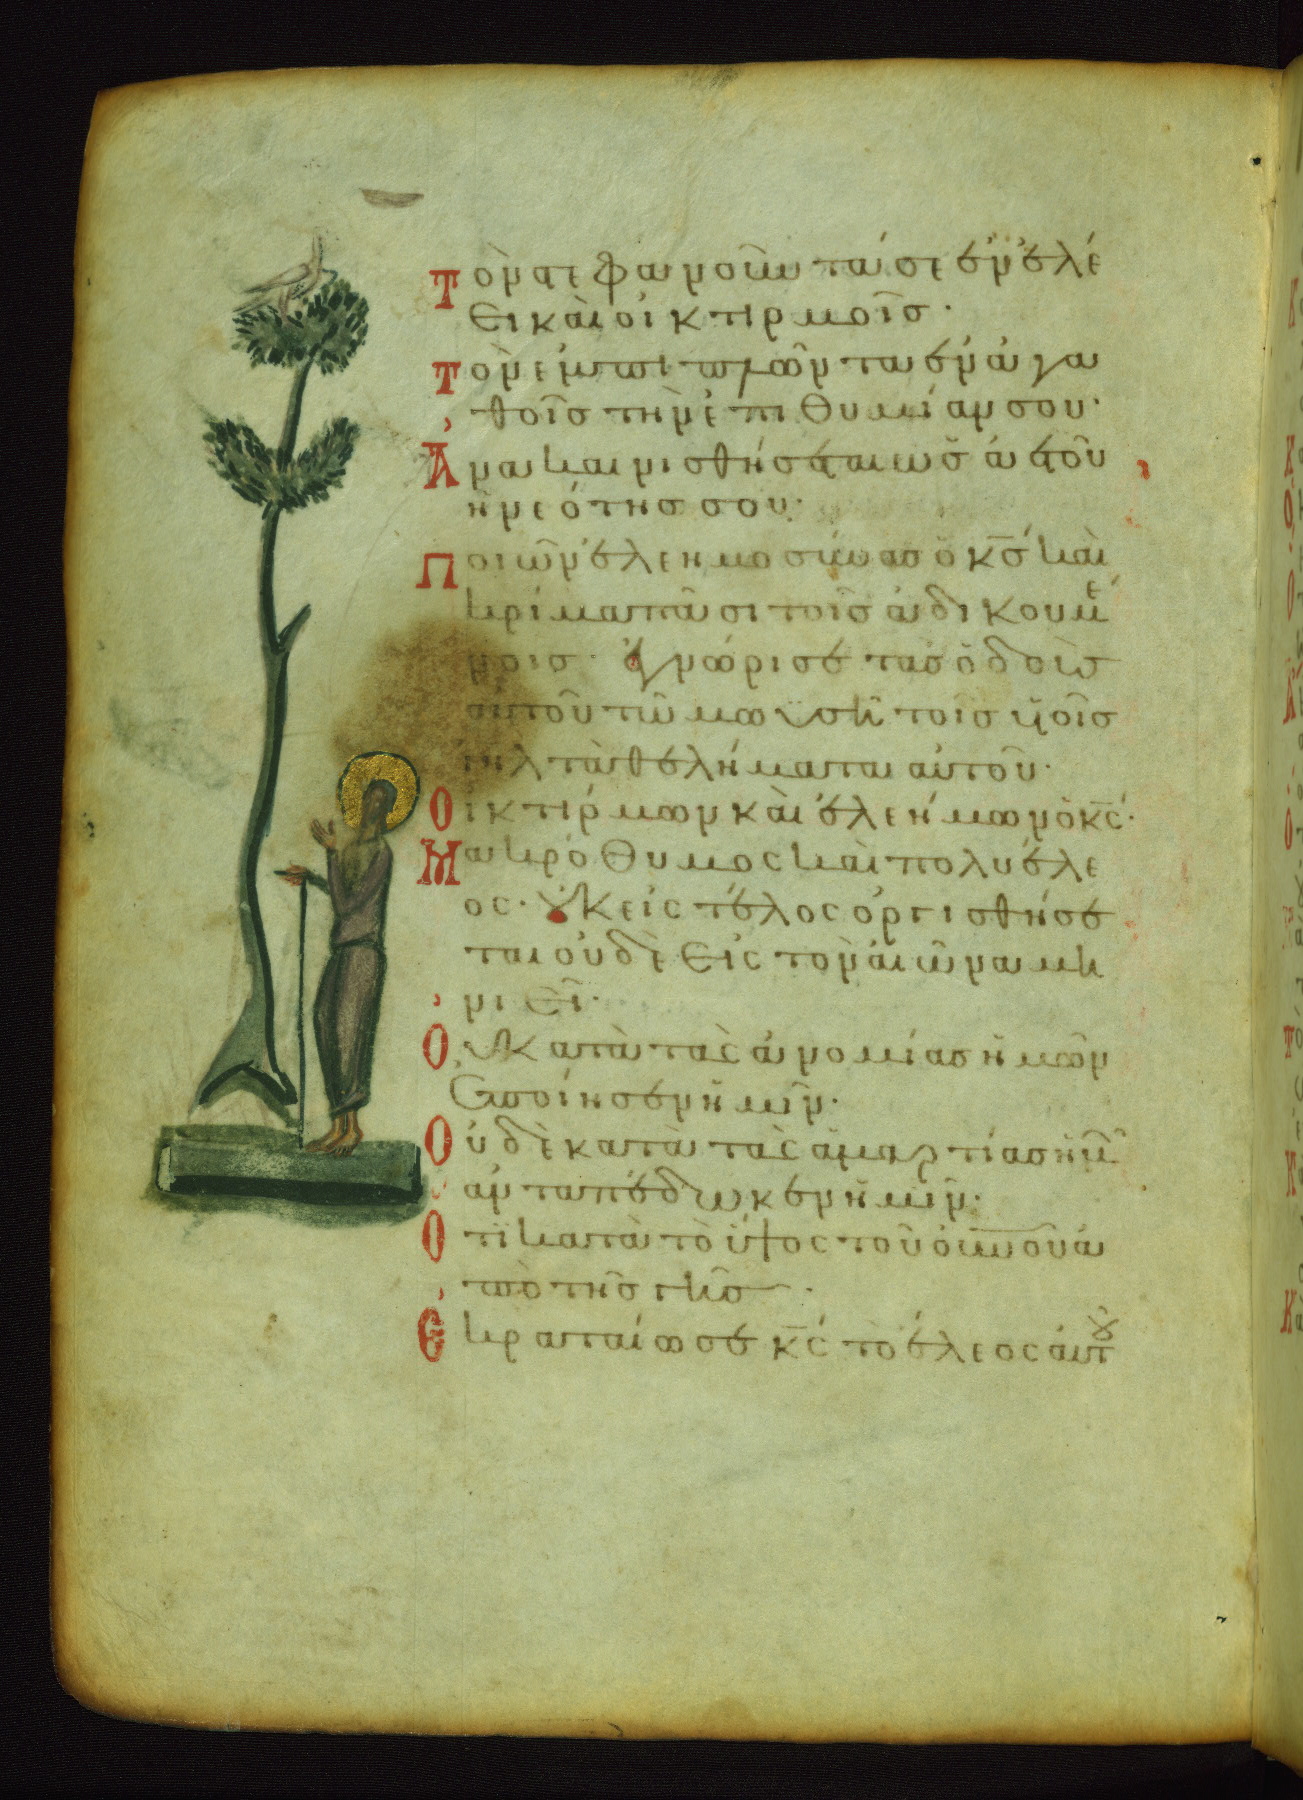 Τὸν στεφανοῦντά σε ἐν ἐλέ
ει καὶ οἰκτιρμοῖς·
Τὸν ἐμπιπλῶντα ἐν ἀγα
θοῖς τὴν ἐπιθυμίαν σου·
Ἀνακαινισθήσεται ὡς ἀετοῦ
ἡ νεότης σου·
Ποιῶν ἐλεημοσύνας ὁ κ̅ς̅ καὶ
κρίμα πᾶσι τοῖς ἀδικουμέ
νοις· ἐγνώρισε τὰς ὁδοὺς
αὐτοῦ τῷ μωϋσῇ τοῖς υἱοῖς
ιηλ τὰ θελήματα αὐτοῦ·
Οἰκτίρμων καὶ ἐλεήμων ὁ κ̅ς̅·
Μακρόθυμος καὶ πολυέλε
ος· οὐκ εἰς τέλος ὀργισθήσε
ται οὐδὲ εἰς τὸν αἰῶνα μη
νιεῖ·
Οὐ κατὰ τὰς ἀνομίας ἡμῶν
ἐποίησεν ἡμῖν·
Οὐδὲ κατὰ τὰς ἁμαρτίας ἡμ
ἀνταπέδωκεν ἡμῖν·
Οτι κατὰ τὸ ὕψος τοῦ οὐ̅ν̅οῦ ἀ
πὸ τῆς γῆς·
Εκραταίωσε κ̅ς̅ τὸ ἔλεος αὐτοῦ